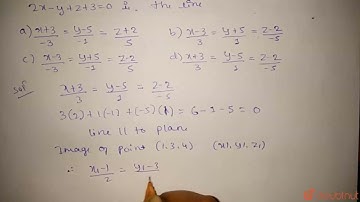 2x-y+z+3=0 is, the line
a) x+3/-3 = y-5/-1 = z+2/5 b) x-3/-3 = y+5/1 = z-2/-5
c) x-3/-3 = y-5/-1 = z-2/5 d) x+3/3 = y-5/1 = z-2/-5
Solⁿ x+3/3 = y-5/1 = z-2/-5
3(2)+1(-1)+(-5)(1)=6-1-5=0
line || to plane
Image of point (1,3,4) (x1,y1,z1)
∴ x1-1/2 = y1-3/
doubtnut